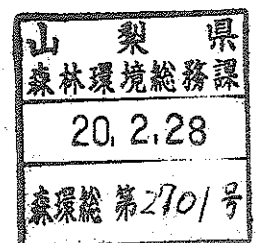 山梨県
森林環境総務課
20.2.28
森環総 第2701号